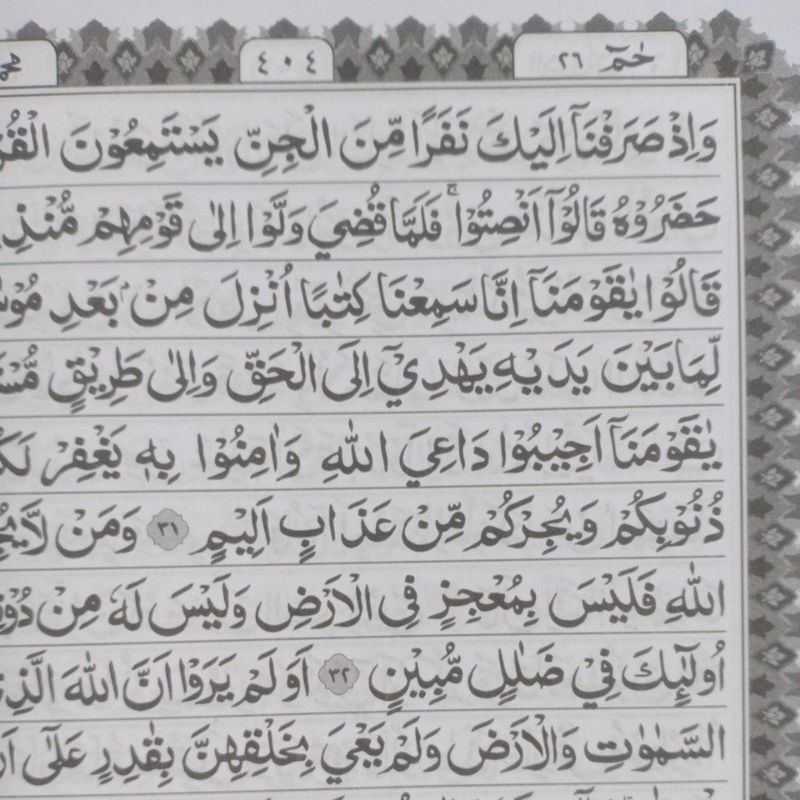 حٰمٓ ٢٦
٤٠٤
وَاِذْ صَرَفْنَآ اِلَيْكَ نَفَرًا مِّنَ الْجِنِّ يَسْتَمِعُوْنَ
حَضَرُوْهُ قَالُوْٓا اَنْصِتُوْا ۚ فَلَمَّا قُضِيَ وَلَّوْا اِلٰى قَوْمِهِمْ
قَالُوْا يٰقَوْمَنَآ اِنَّا سَمِعْنَا كِتٰبًا اُنْزِلَ مِنْۢ بَعْدِ
لِّمَا بَيْنَ يَدَيْهِ يَهْدِيْٓ اِلَى الْحَقِّ وَاِلٰى طَرِيْقٍ
يٰقَوْمَنَآ اَجِيْبُوْا دَاعِيَ اللّٰهِ وَاٰمِنُوْا بِهٖ يَغْفِرْ
ذُنُوْبِكُمْ وَيُجِرْكُمْ مِّنْ عَذَابٍ اَلِيْمٍ ٣١ وَمَنْ لَّا
اللّٰهِ فَلَيْسَ بِمُعْجِزٍ فِى الْاَرْضِ وَلَيْسَ لَهٗ مِنْ
اُولٰٓئِكَ فِيْ ضَلٰلٍ مُّبِيْنٍ ٣٢ اَوَلَمْ يَرَوْا اَنَّ اللّٰهَ
السَّمٰوٰتِ وَالْاَرْضَ وَلَمْ يَعْيَ بِخَلْقِهِنَّ بِقٰدِرٍ عَلٰٓى